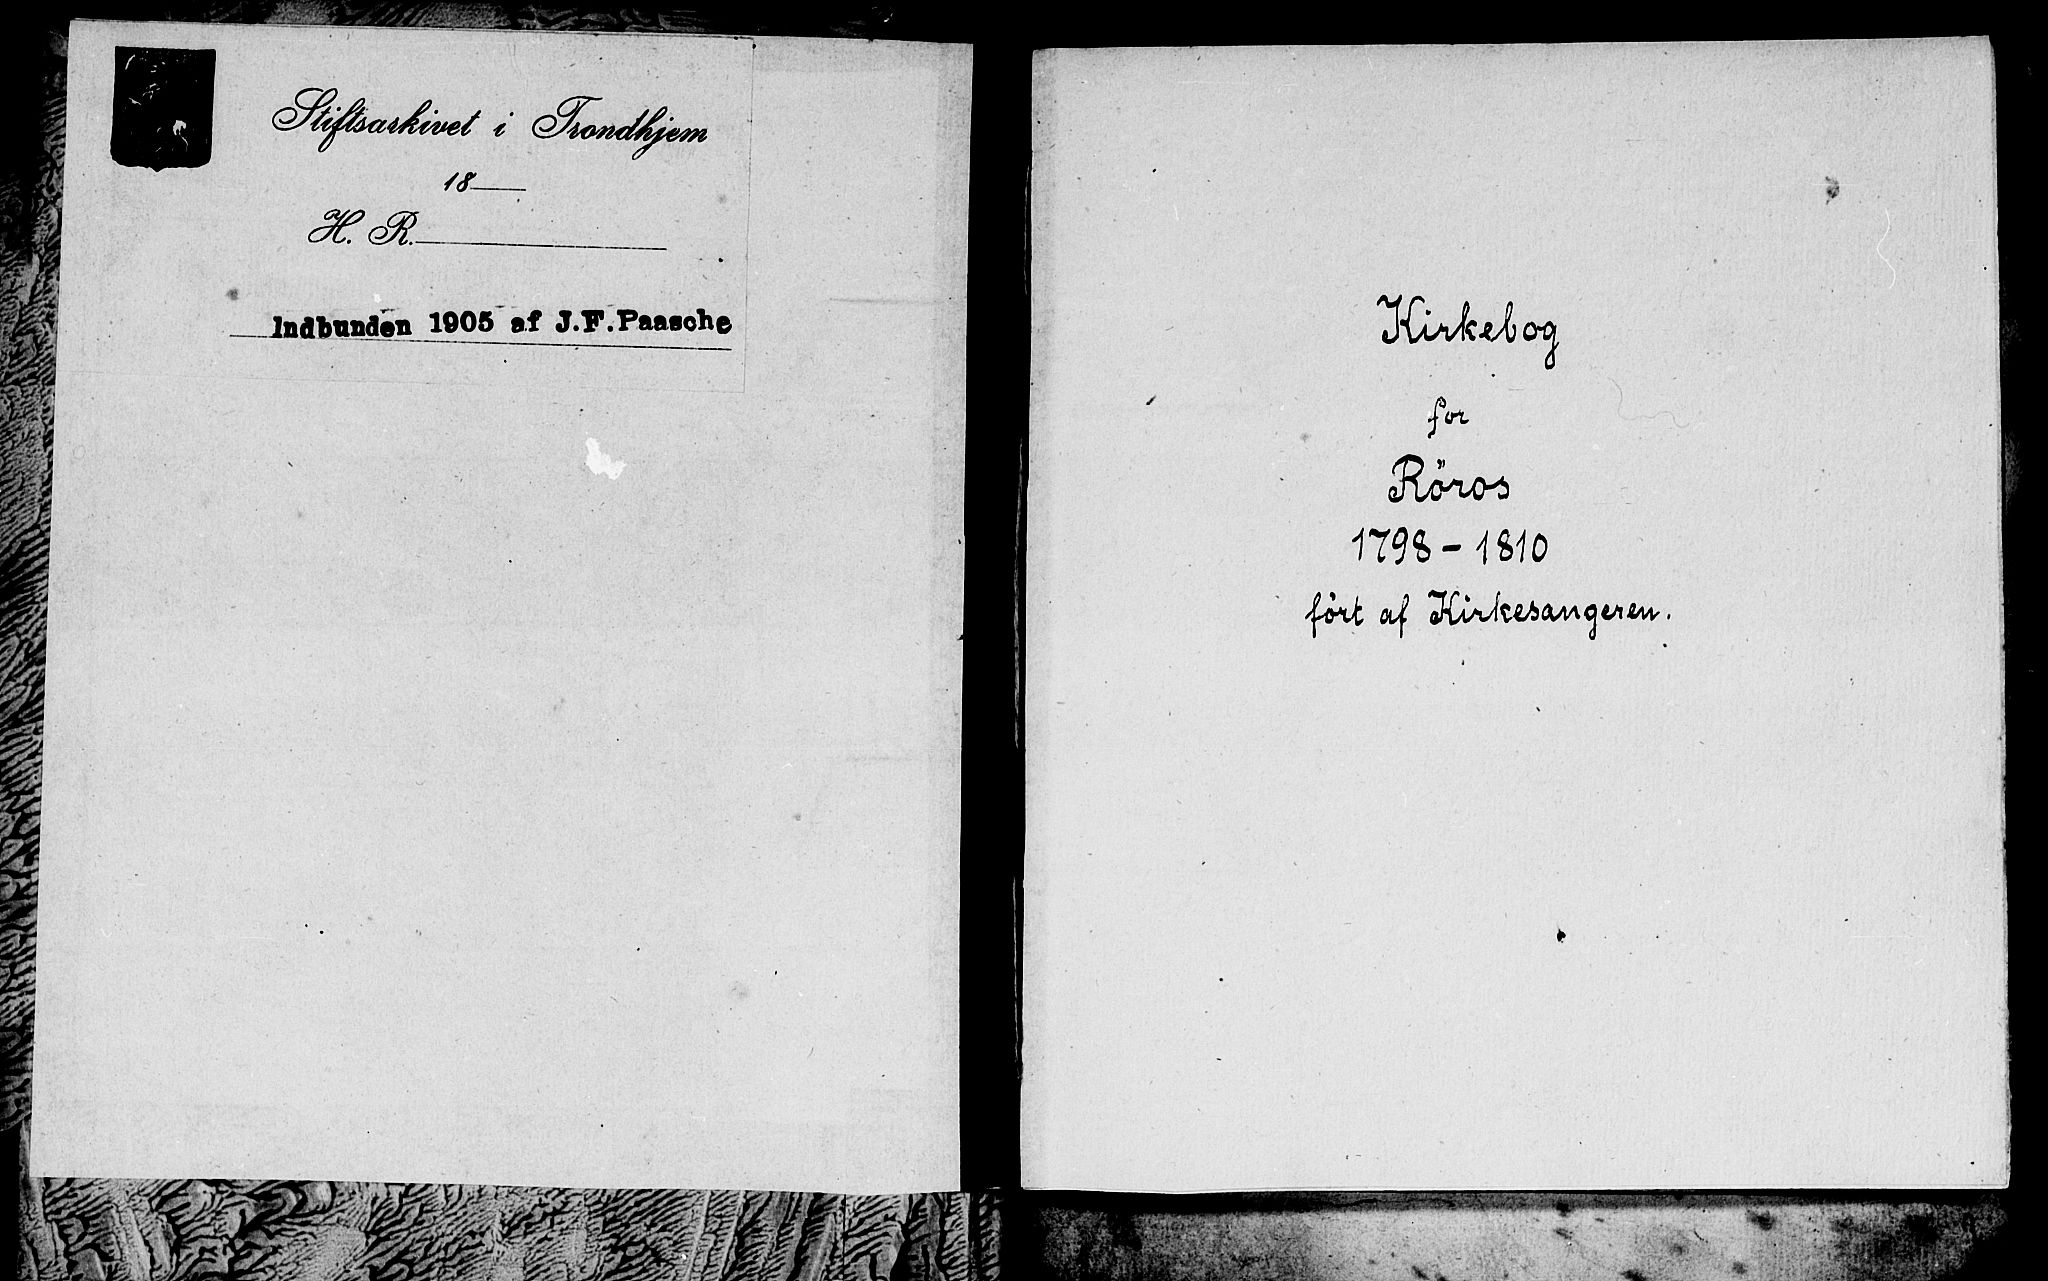 Stiftsarkivet i Trondhjem
18
H. R.
Indbunden 1905 af J.F.Paasche
Kirkebog
for
Röros
1798 - 1810
fört af Kirkesangeren.